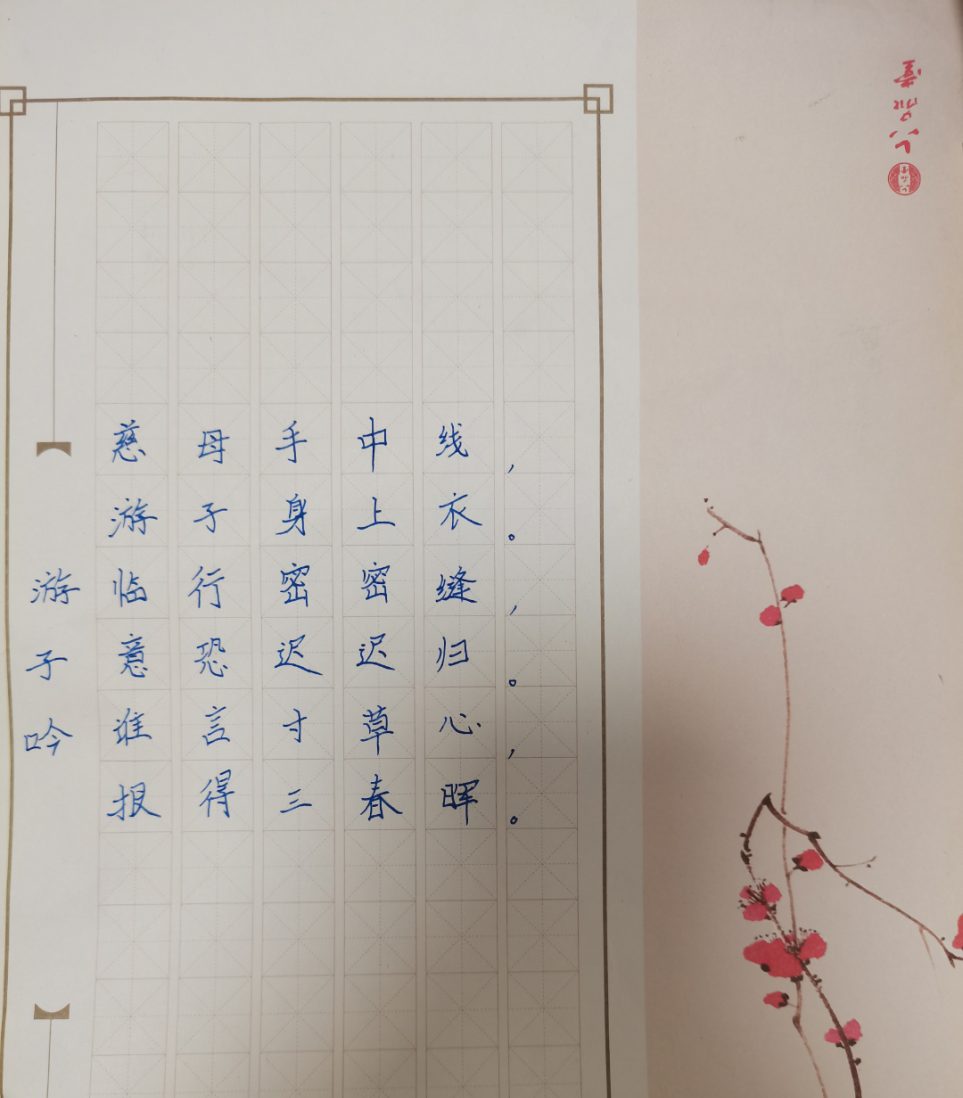 游子吟
慈母手中线，
游子身上衣。
临行密密缝，
意恐迟迟归。
谁言寸草心，
报得三春晖。
六品堂